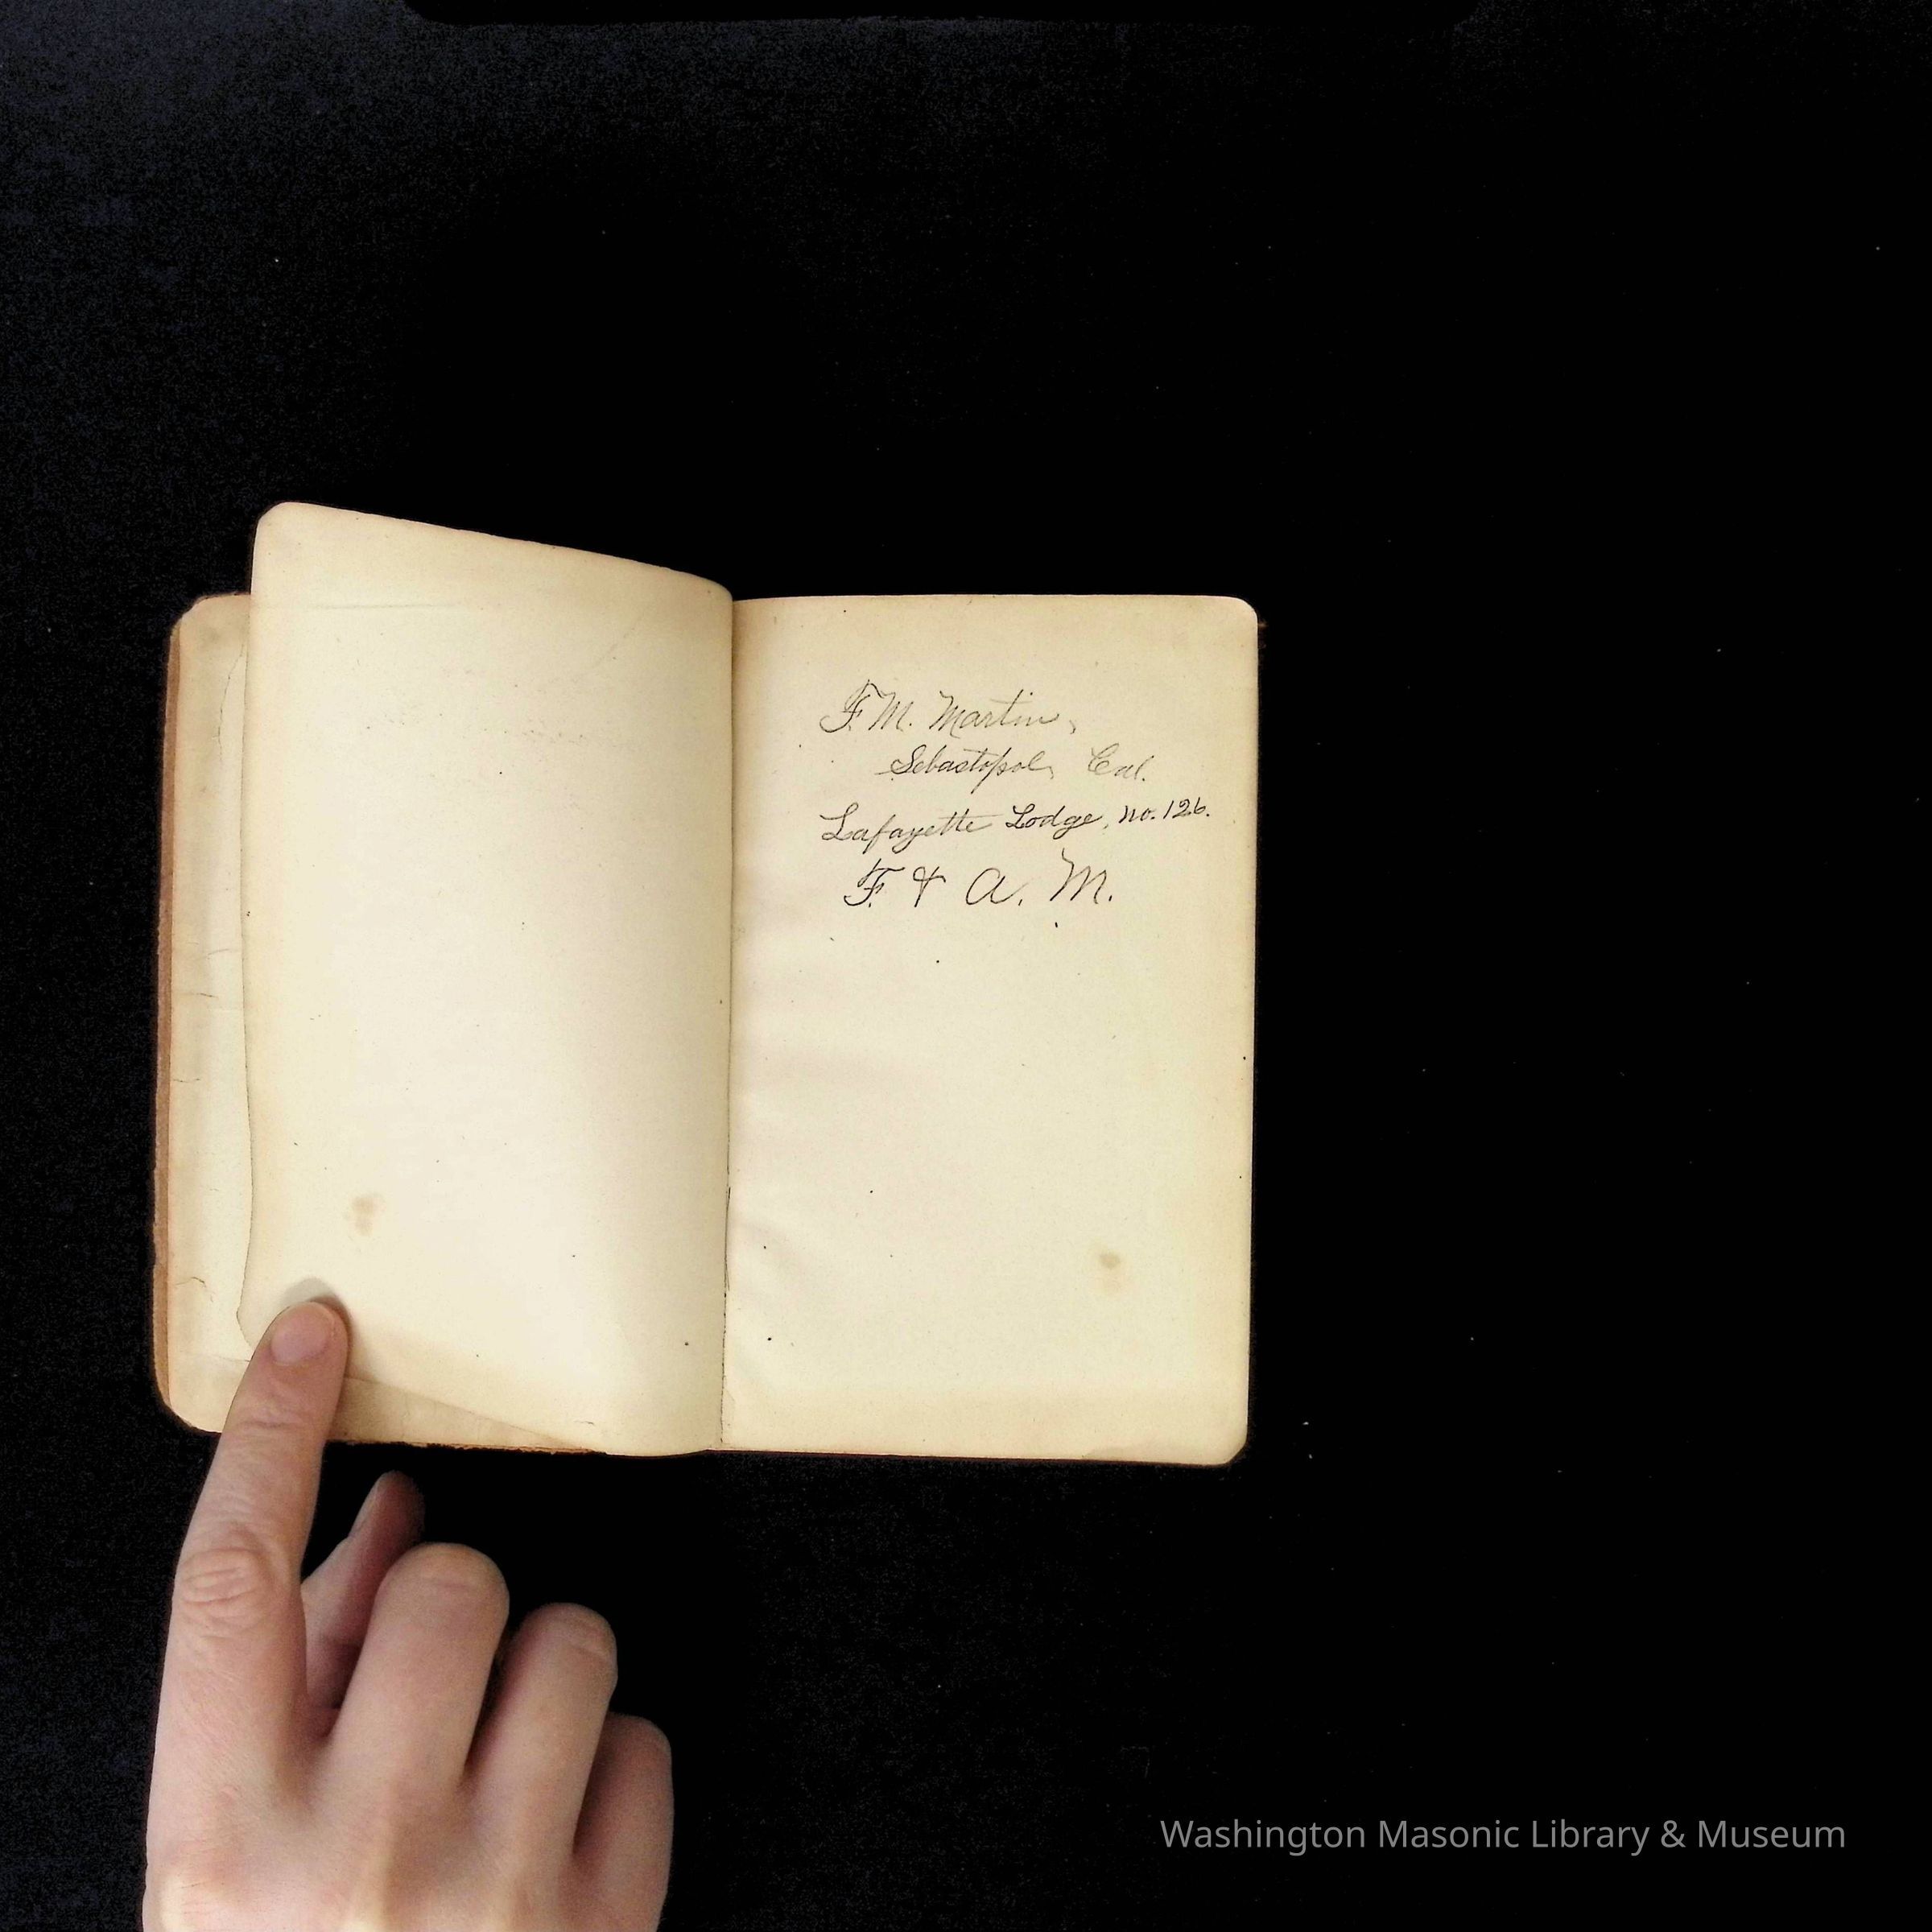 F. M. Martin,
Sebastopol, Cal.
Lafayette Lodge, No. 126.
F. & A. M.
Washington Masonic Library & Museum